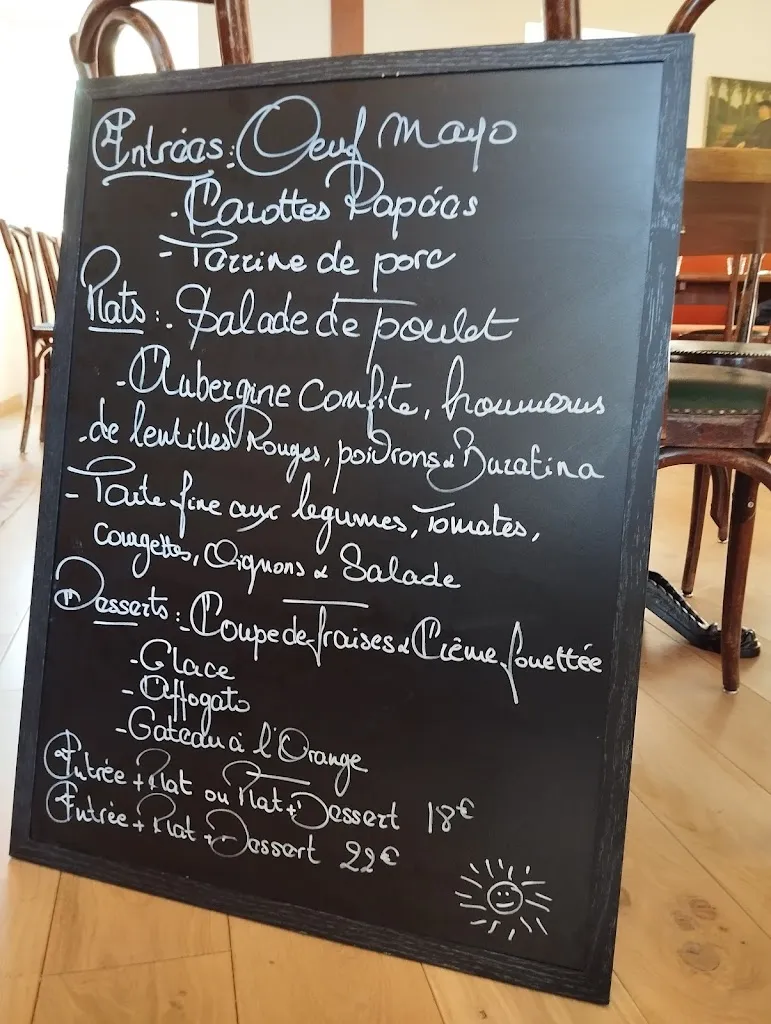 Entrées : Oeuf mayo
. Carottes Rapées
- Terrine de porc
Plats : . Salade de poulet
- Aubergine confite, houmous
. de lentilles Rouges, poivrons & Buratina
- Tarte fine aux légumes, Tomates,
courgettes, Oignons & Salade
Desserts : - Coupe de fraises & Crème fouettée
- Glace
- Affogato
- Gateau à l'Orange
Entrée + Plat ou Plat + Dessert 18€
Entrée + Plat + Dessert 22€